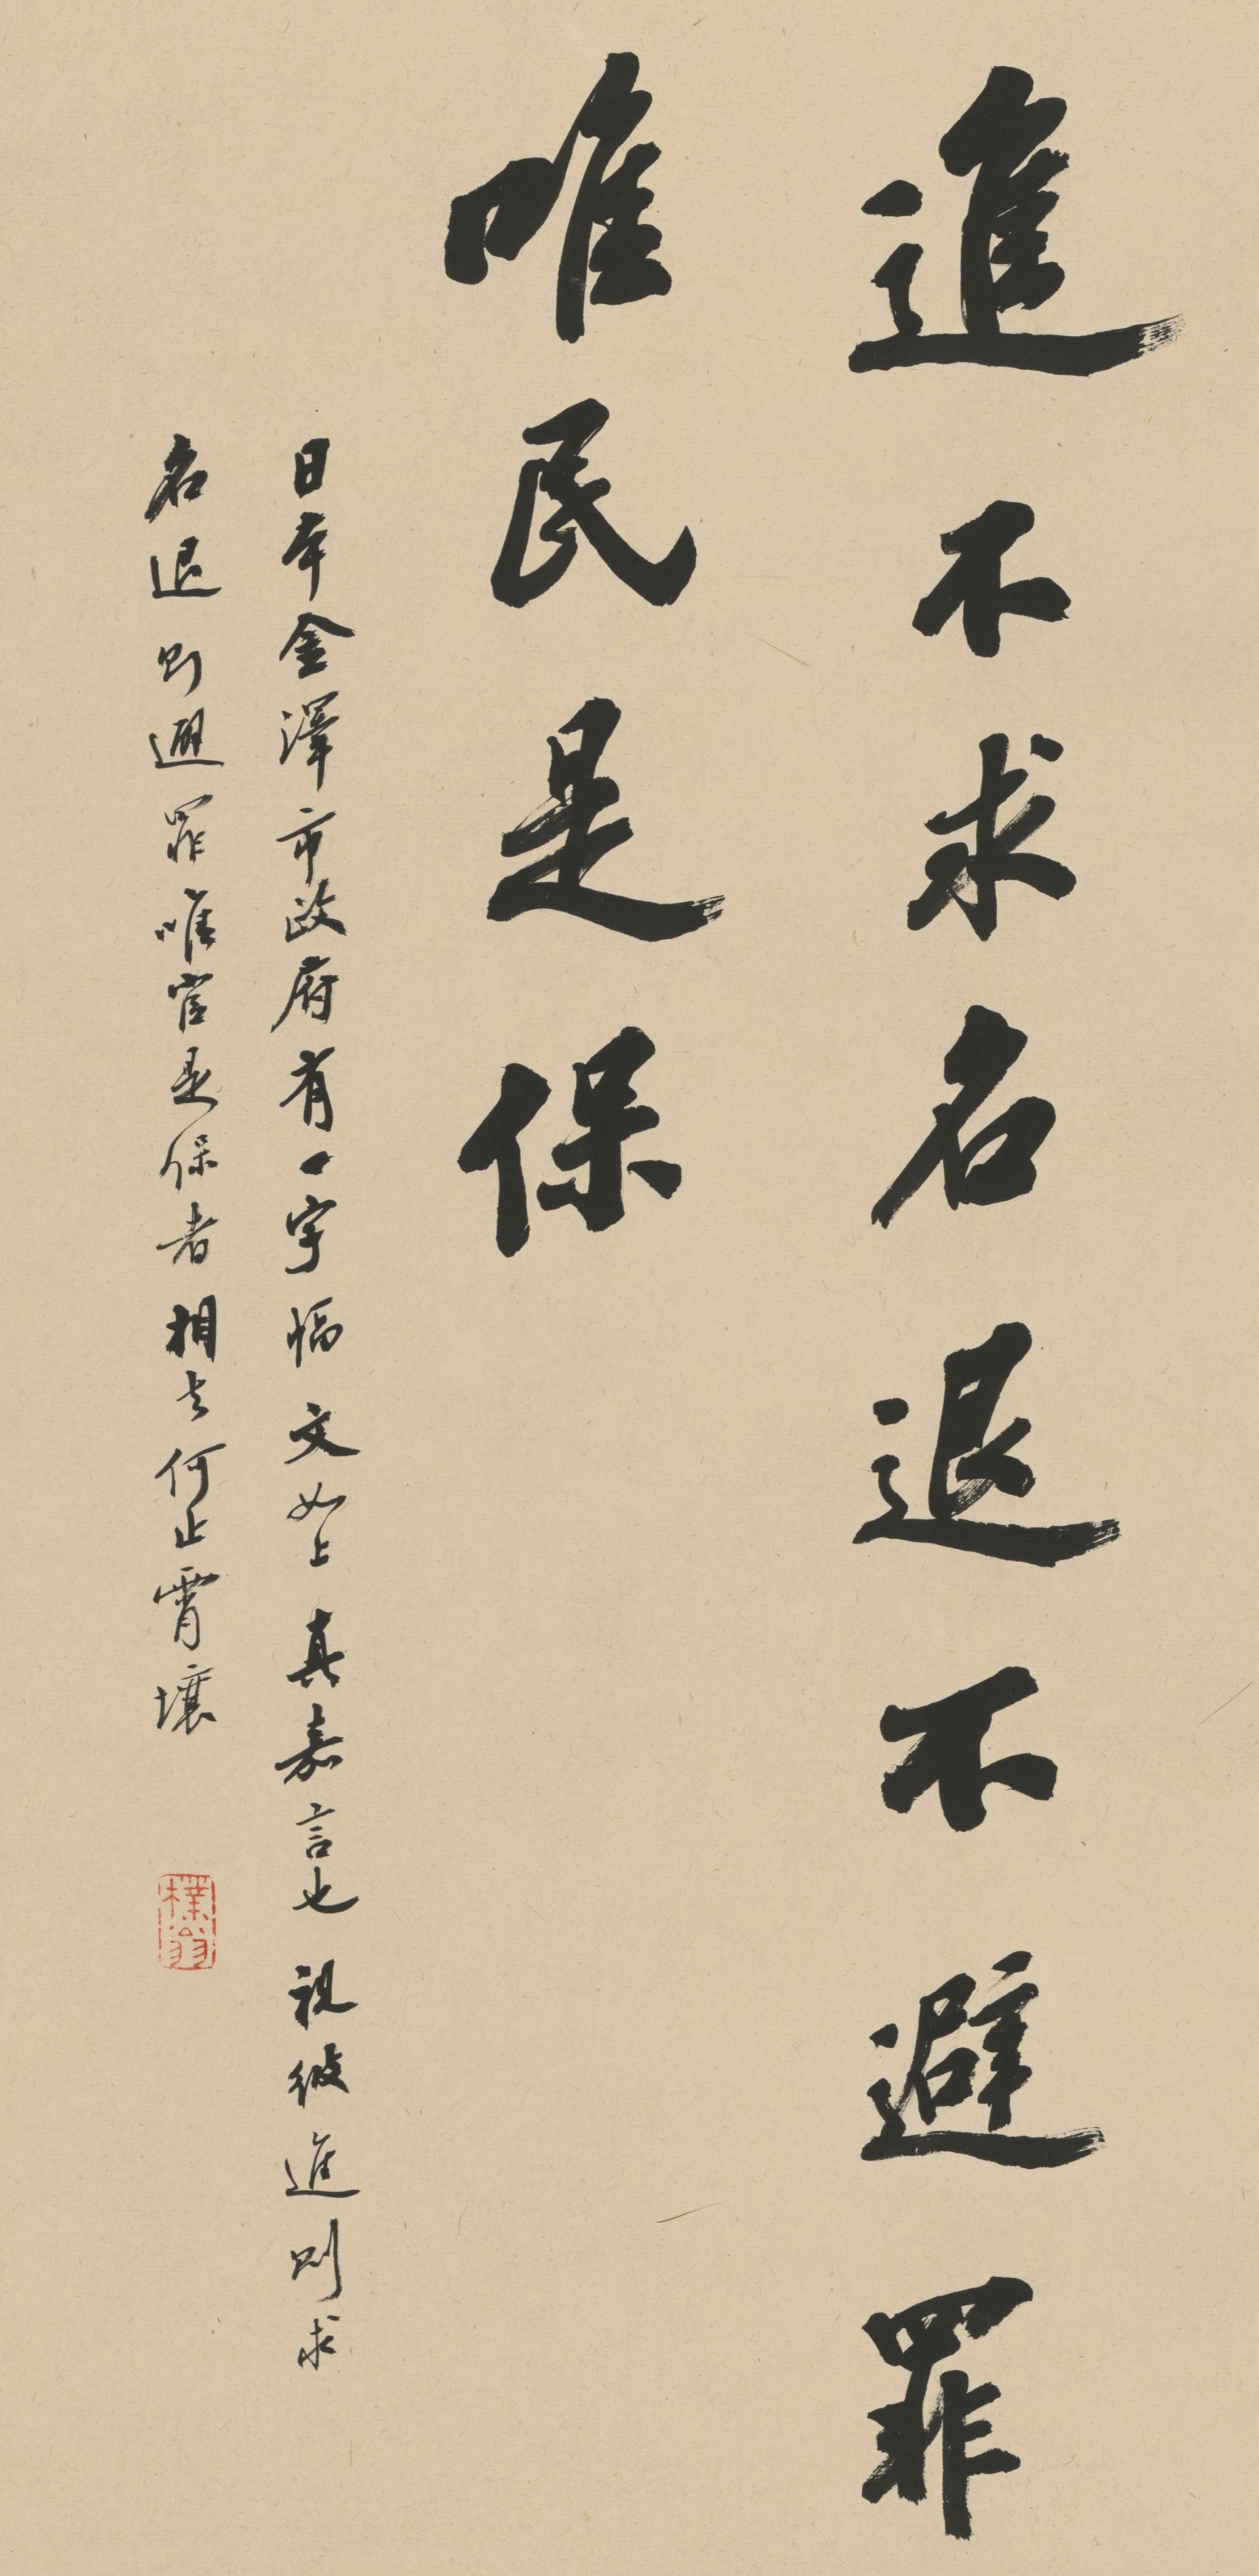 進不求名退不避罪
唯民是保
日本金澤市政府有一字幅文如上真嘉言也視彼進則求
名退則避罪唯官是保者相去何止霄壤
樸翁